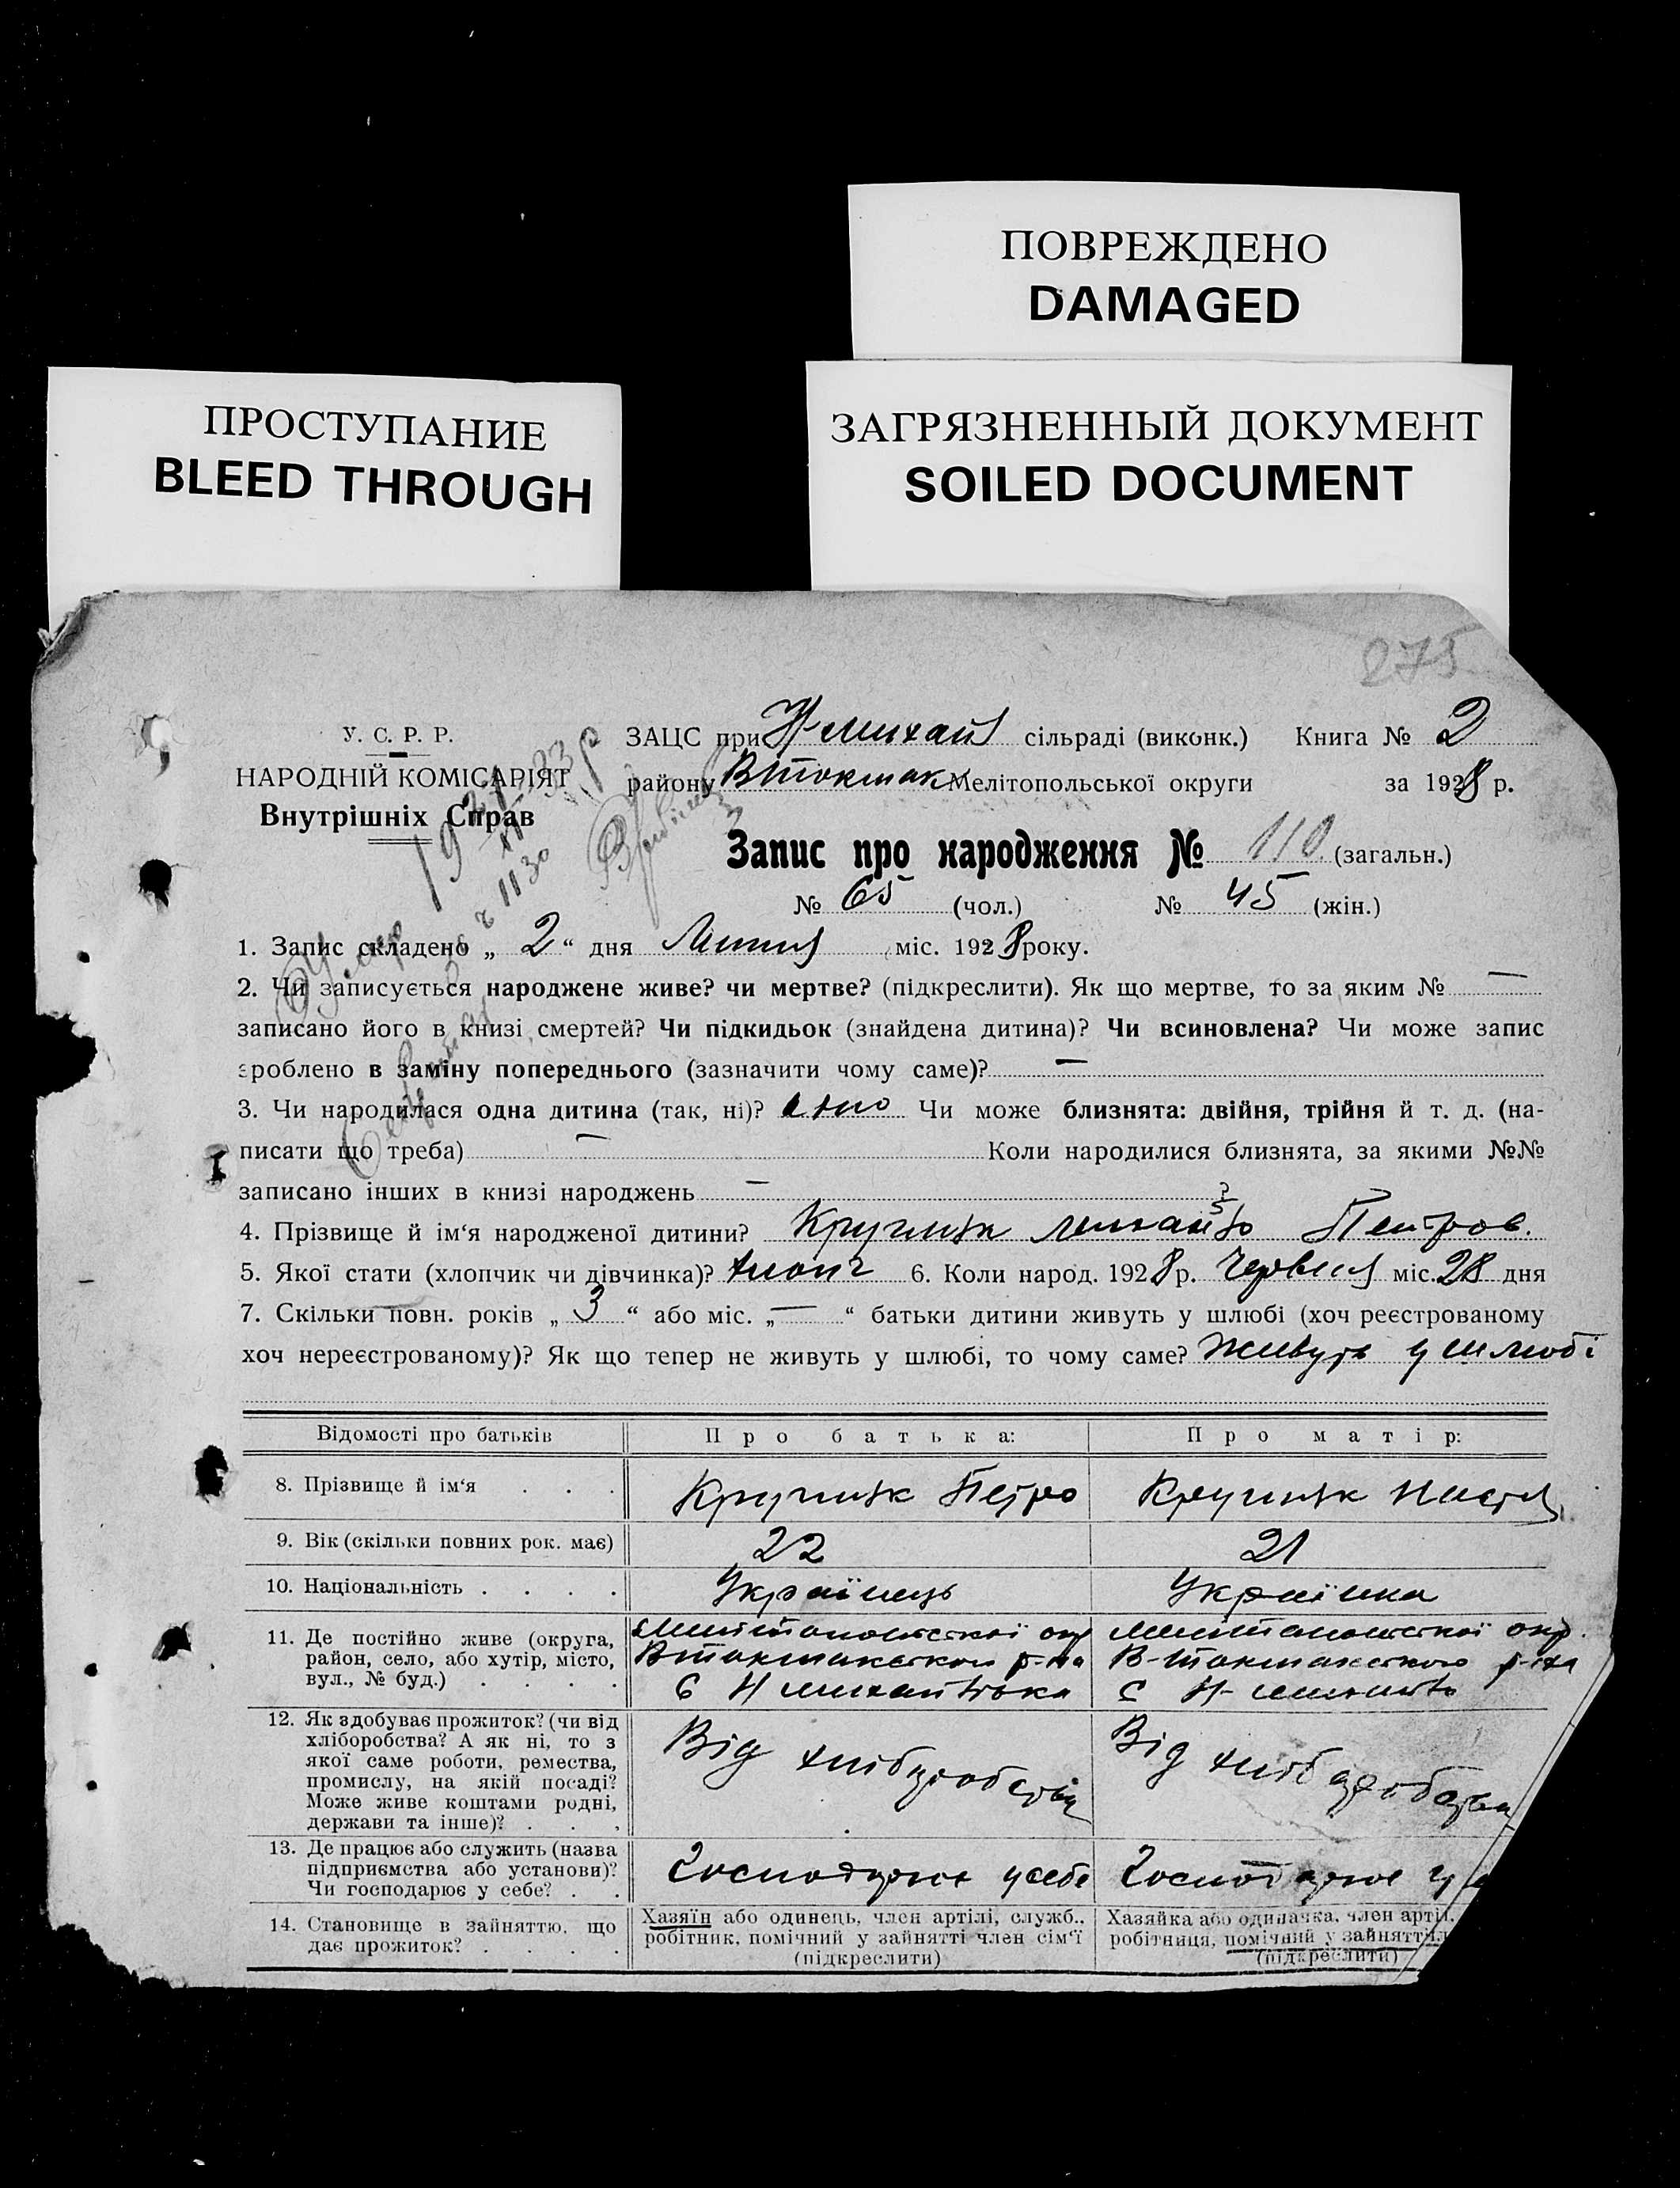 ПОВРЕЖДЕНО
DAMAGED
ПРОСТУПАНИЕ
BLEED THROUGH
ЗАГРЯЗНЕННЫЙ ДОКУМЕНТ
SOILED DOCUMENT
275
У. С. Р. Р.
НАРОДНІЙ КОМІСАРІЯТ
Внутрішніх Справ
ЗАЦС при Н-Михайл сільраді (виконк.) Книга № 2
району ВТокмак Мелітопольської округи за 1928 р.
Запис про народження № 110 (загальн.)
№ 65 (чол.) № 45 (жін.)
1. Запис складено „ 2 “ дня Липня міс. 1928 року.
2. Чи записується народжене живе? чи мертве? (підкреслити). Як що мертве, то за яким № —
записано його в книзі смертей? Чи підкидьок (знайдена дитина)? Чи всиновлена? Чи може запис
зроблено в заміну попереднього (зазначити чому саме)? —
3. Чи народилася одна дитина (так, ні)? Чи може близнята: двійня, трійня й т. д. (на-
писати що треба) — Коли народилися близнята, за якими №№
записано інших в книзі народжень — ?
4. Прізвище й ім‘я народженої дитини? Михайло Петров.
5. Якої стати (хлопчик чи дівчинка)? хлопч 6. Коли народ. 1928 р. Червня міс. 28 дня
7. Скільки повн. років „ 3 “ або міс. „ — “ батьки дитини живуть у шлюбі (хоч реєстрованому
хоч нереєстрованому)? Як що тепер не живуть у шлюбі, то чому саме? Живуть у шлюбі
Відомості про батьків Про батька: Про матір:
8. Прізвище й ім‘я . . . Петро Настя
9. Вік (скільки повних рок. має) 22 21
10. Національність . . . . Українець Українка
11. Де постійно живе (округа,
район, село, або хутір, місто,
вул., № буд.) . . . .
Мелітопольської окр
ВТокмакского р-на
С Н Михайлівка
Мелітопольської окр.
В-Токмакского р-на
С Н-
12. Як здобуває прожиток? (чи від
хліборобства? А як ні, то з
якої саме роботи, ремества,
промислу, на якій посаді?
Може живе коштами родні,
держави та інше)? . . .
Від хліборобства
Від хліборобства
13. Де працює або служить (назва
підприємства або установи)?
Чи господарює у себе? . .
Господарює у себе
Господарює у
14. Становище в зайняттю, що
дає прожиток? . . . .
Хазяїн або одинець, член артілі, служб.,
робітник, помічний у зайнятті член сім‘ї
(підкреслити)
Хазяйка або одиначка, член артіл.
робітниця, помічний у зайнятті
(підкреслити)